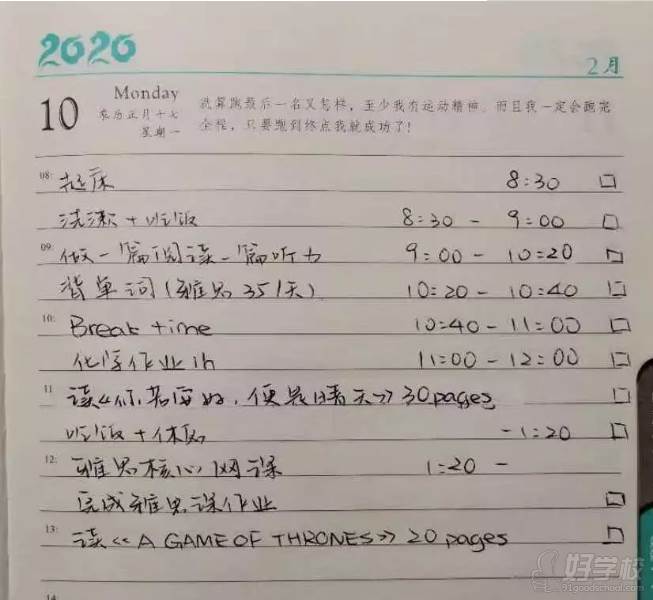 2020
2月
Monday
10
农历正月十七
星期一
就算跑最后一名又怎样，至少我有运动精神，而且我一定会跑完
全程，只要跑到终点我就成功了！
08: 起床 8:30 □
洗漱+吃饭 8:30 - 9:00 □
09: 做一篇阅读一篇听力 9:00 - 10:20 □
背单词(雅思 351天) 10:20 - 10:40 □
10: Break time 10:40 - 11:00 □
化学作业 1h 11:00 - 12:00 □
11 读《你若安好，便是晴天》30 pages □
吃饭+休息 - 1:20 □
12: 雅思核心网课 1:20 -
完成雅思课作业 □
13: 读《A GAME OF THRONES》20 pages □
14
好学校
91goodschool.com